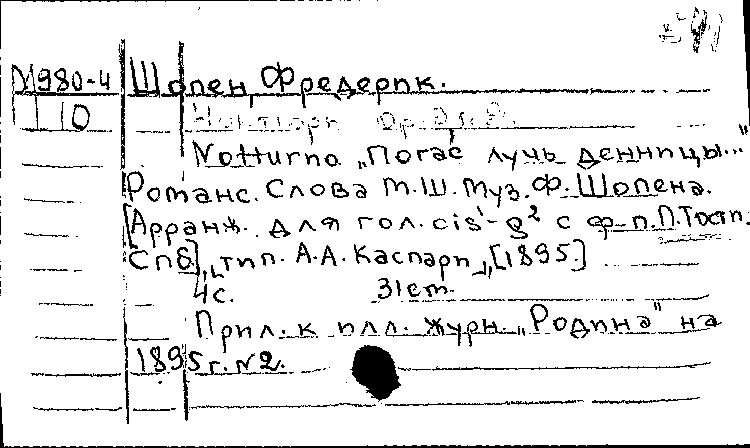 М980-4 Шопен, Фредерик.
Ноктюрн Op.
Notturno „Погас лучь денницы..."
Романс. Слова М.Ш. Муз. Ф. Шопена.
[Арранж. для гол. cis¹-g² с ф-п. П. Тости.
Спб], тип. А.А. Каспари, [1895]
4с. 31ст.
Прил. к илл. журн. „Родина" на
1895г. №2.